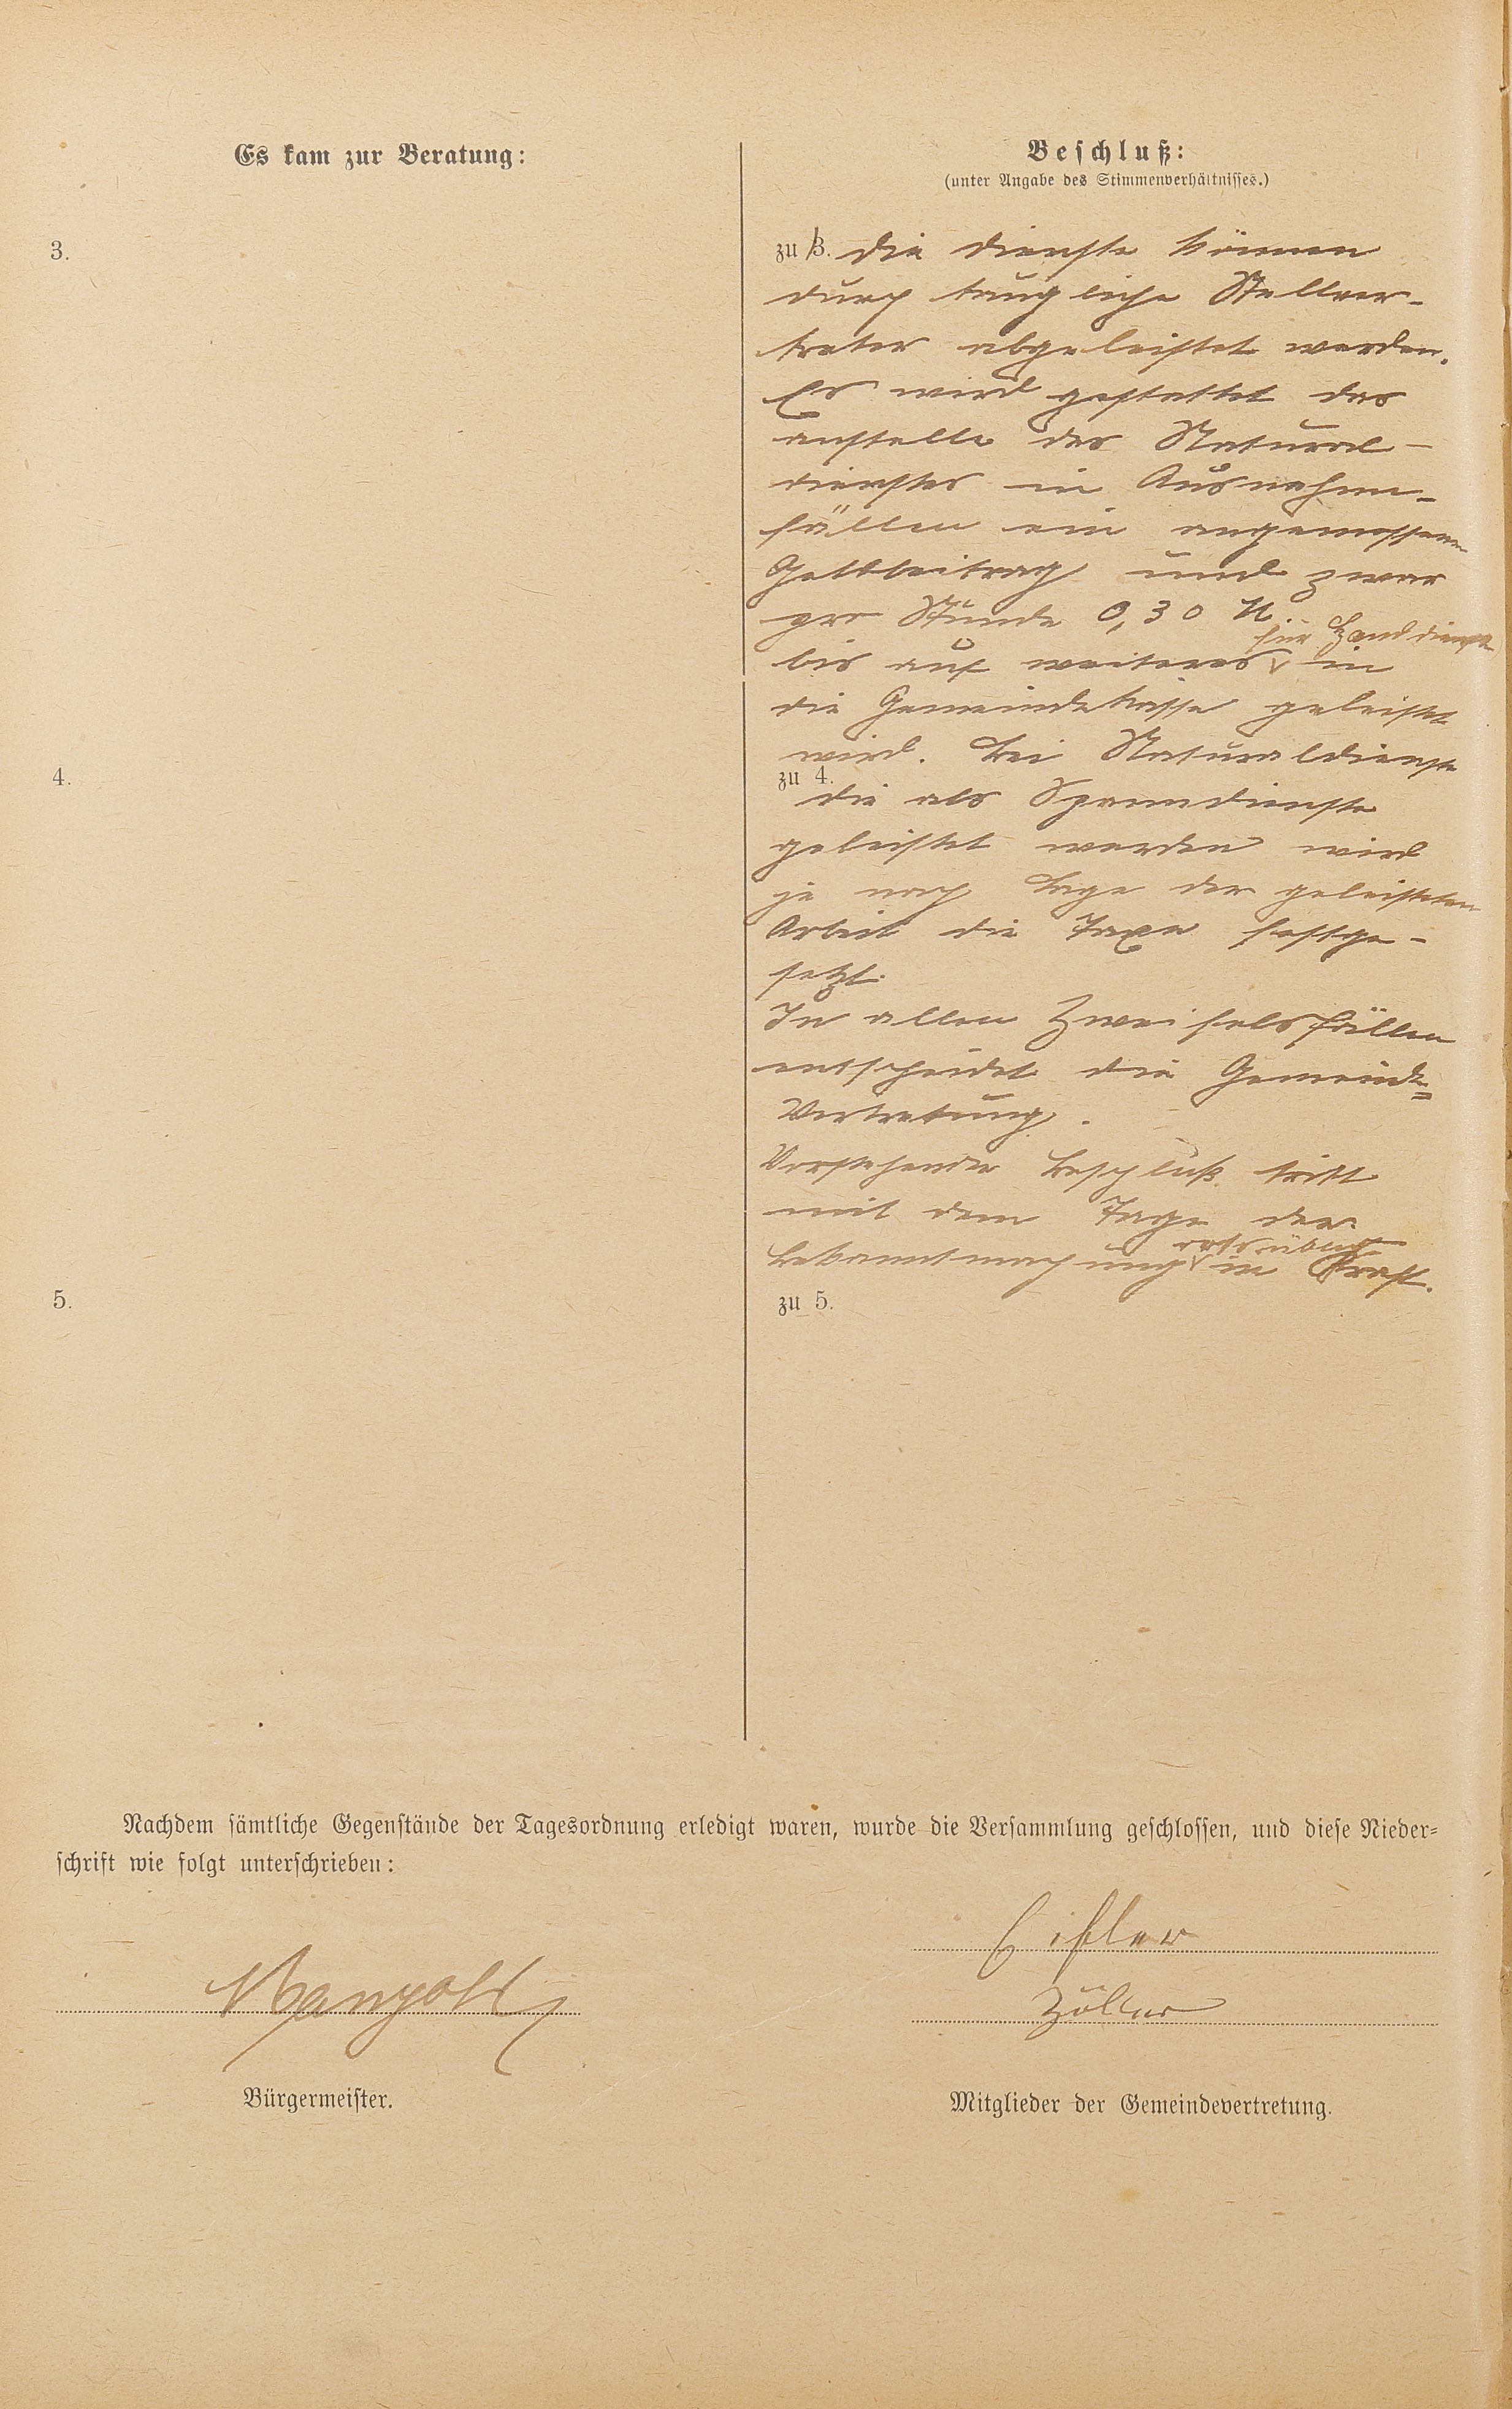 Es kam zur Beratung:
Beschluß:
(unter Angabe des Stimmenverhältnisses.)
3.
zu 3. Die Dienste können
durch taugliche Stellver-
treter abgeleistet werden.
Es wird gestattet das
anstelle des Natural-
dienstes in Ausnahme-
fällen ein angemessener
Geldbeitrag und zwar
pro Stunde 0,30 M.
für Handdienste
bis auf weiteres in
die Gemeindekasse geleistet
wird. Bei Naturaldienste
4.
zu 4.
die als Spanndienste
geleistet werden wird
je nach Lage der geleisteten
Arbeit die Taxe festge-
setzt.
In allen Zweifelsfällen
entscheidet die Gemeinde=
Vertretung.
Vorstehender Beschluß tritt
mit dem Tage der
ortsüblich
Bekanntmachung in Kraft.
5.
zu 5.
Nachdem sämtliche Gegenstände der Tagesordnung erledigt waren, wurde die Versammlung geschlossen, und diese Nieder=
schrift wie folgt unterschrieben:
Zöller
Bürgermeister.
Mitglieder der Gemeindevertretung.